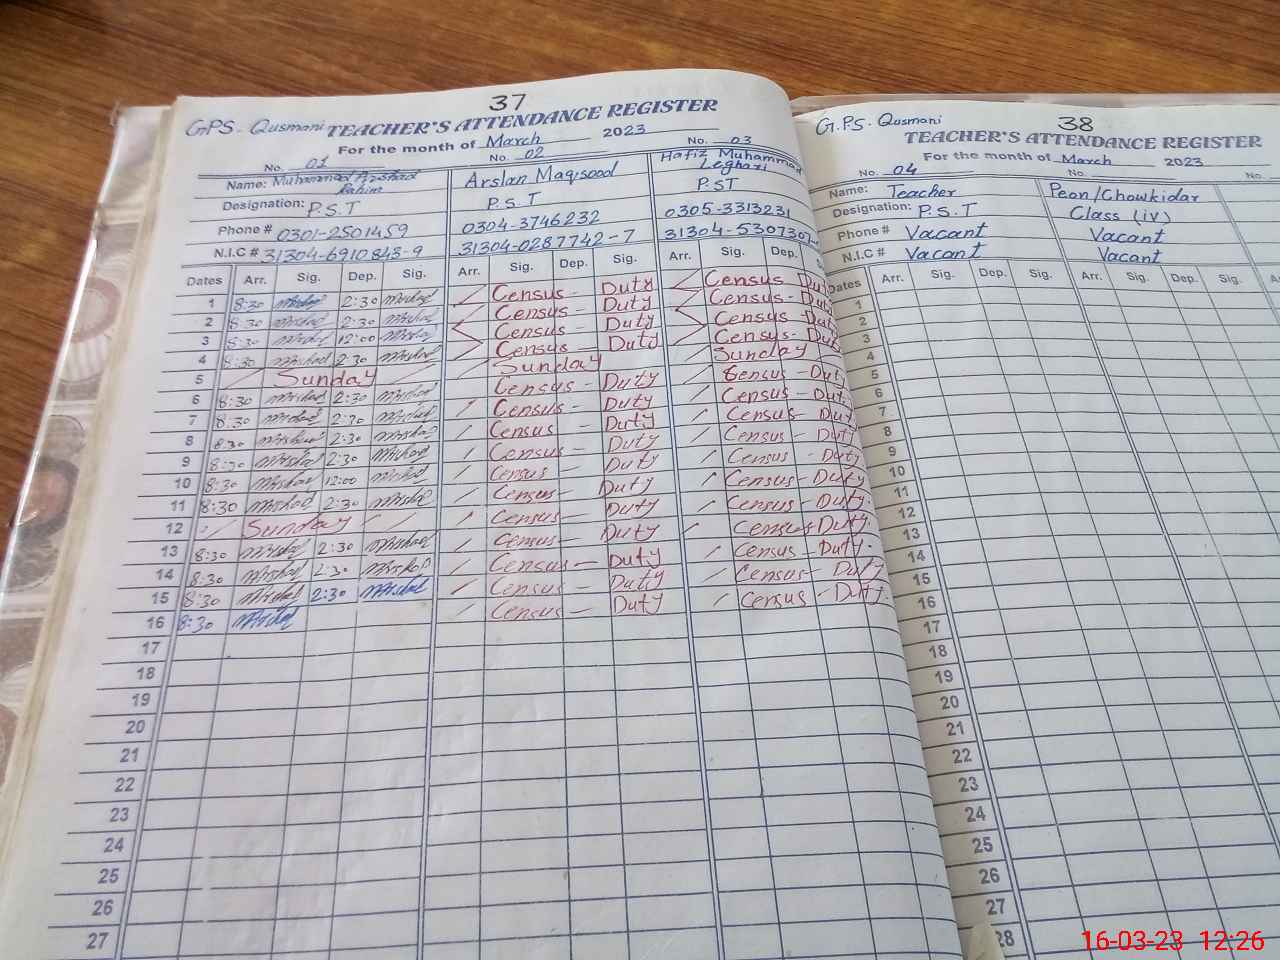 37
G.P.S. Qusmani TEACHER'S ATTENDANCE REGISTER
For the month of March 2023
No. 01 No. 02 No. 03
Name: Muhammad Arshad Rahim Arslan Maqsood Hafiz Muhammad Leghari
Designation: P.S.T P.S.T P.ST
Phone # 0301-2501459 0304-3746232 0305-3313231
N.I.C # 31304-6910843-9 31304-0287742-7 31304-5307307-
Dates Arr. Sig. Dep. Sig. Arr. Sig. Dep. Sig. Arr. Sig. Dep. Sig.
1 8:30 2:30 Census - Duty Census Duty
2 8:30 2:30 Census - Duty Census - Duty
3 8:30 12:00 Census - Duty Census - Duty
4 8:30 2:30 Census - Duty Census - Duty
5 Sunday Sunday Sunday
6 8:30 2:30 Census - Duty Census - Duty
7 8:30 2:30 Census - Duty Census - Duty
8 8:30 2:30 Census - Duty Census - Duty
9 8:30 2:30 Census - Duty Census - Duty
10 8:30 12:00 Census - Duty Census - Duty
11 8:30 2:30 Census - Duty Census - Duty
12 Sunday Census - Duty Census - Duty
13 8:30 2:30 Census - Duty Census Duty
14 8:30 2:30 Census - Duty Census - Duty
15 8:30 2:30 Census - Duty Census - Duty
16 8:30 Census - Duty Census - Duty
17
18
19
20
21
22
23
24
25
26
27
38
G.P.S. Qusmani
TEACHER'S ATTENDANCE REGISTER
For the month of March 2023
No. 04 No. No.
Name: Teacher Peon/Chowkidar
Designation: P.S.T Class (iv)
Phone # Vacant Vacant
N.I.C # Vacant Vacant
Dates Arr. Sig. Dep. Sig. Arr. Sig. Dep. Sig. Arr.
1
2
3
4
5
6
7
8
9
10
11
12
13
14
15
16
17
18
19
20
21
22
23
24
25
26
27
28
16-03-23 12:26